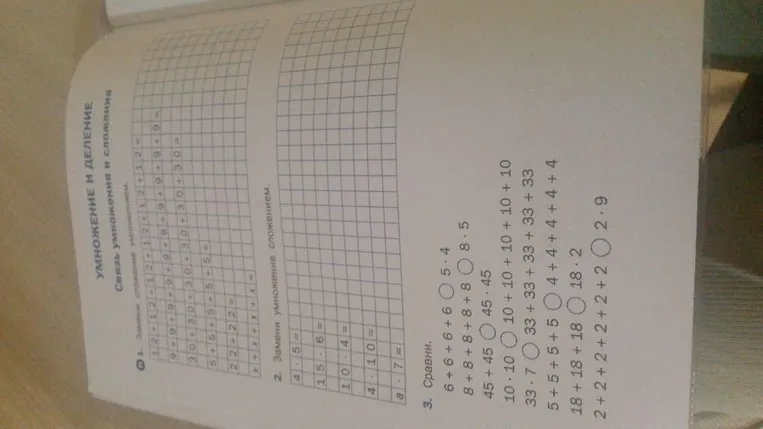 УМНОЖЕНИЕ И ДЕЛЕНИЕ
Связь умножения и сложения
1. Замени сложение умножением.
12+12+12+12+12+12=
30+30+30+30+30+30=
5+5+5+5+5=
22+22=
x+x+x+x=
2. Замени умножение сложением.
4·5=
15·6=
10·4=
4·10=
a·7=
3. Сравни.
6 + 6 + 6 + 6 ○ 5 · 4
8 + 8 + 8 + 8 + 8 ○ 8 · 5
45 + 45 ○ 45 · 45
10 · 10 ○ 10 + 10 + 10 + 10 + 10
33 · 7 ○ 33 + 33 + 33 + 33 + 33
5 + 5 + 5 + 5 ○ 4 + 4 + 4 + 4 + 4
18 + 18 + 18 ○ 18 · 2
2 + 2 + 2 + 2 + 2 + 2 + 2 ○ 2 · 9